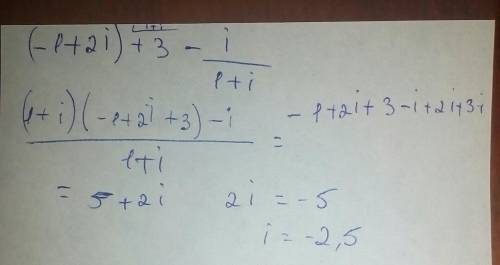 (-1+2i) + 3 - i/(1+i)
((1+i)(-1+2i+3)-i)/(1+i) = -1+2i+3-i+2i+3i
= 5+2i 2i = -5
i = -2,5